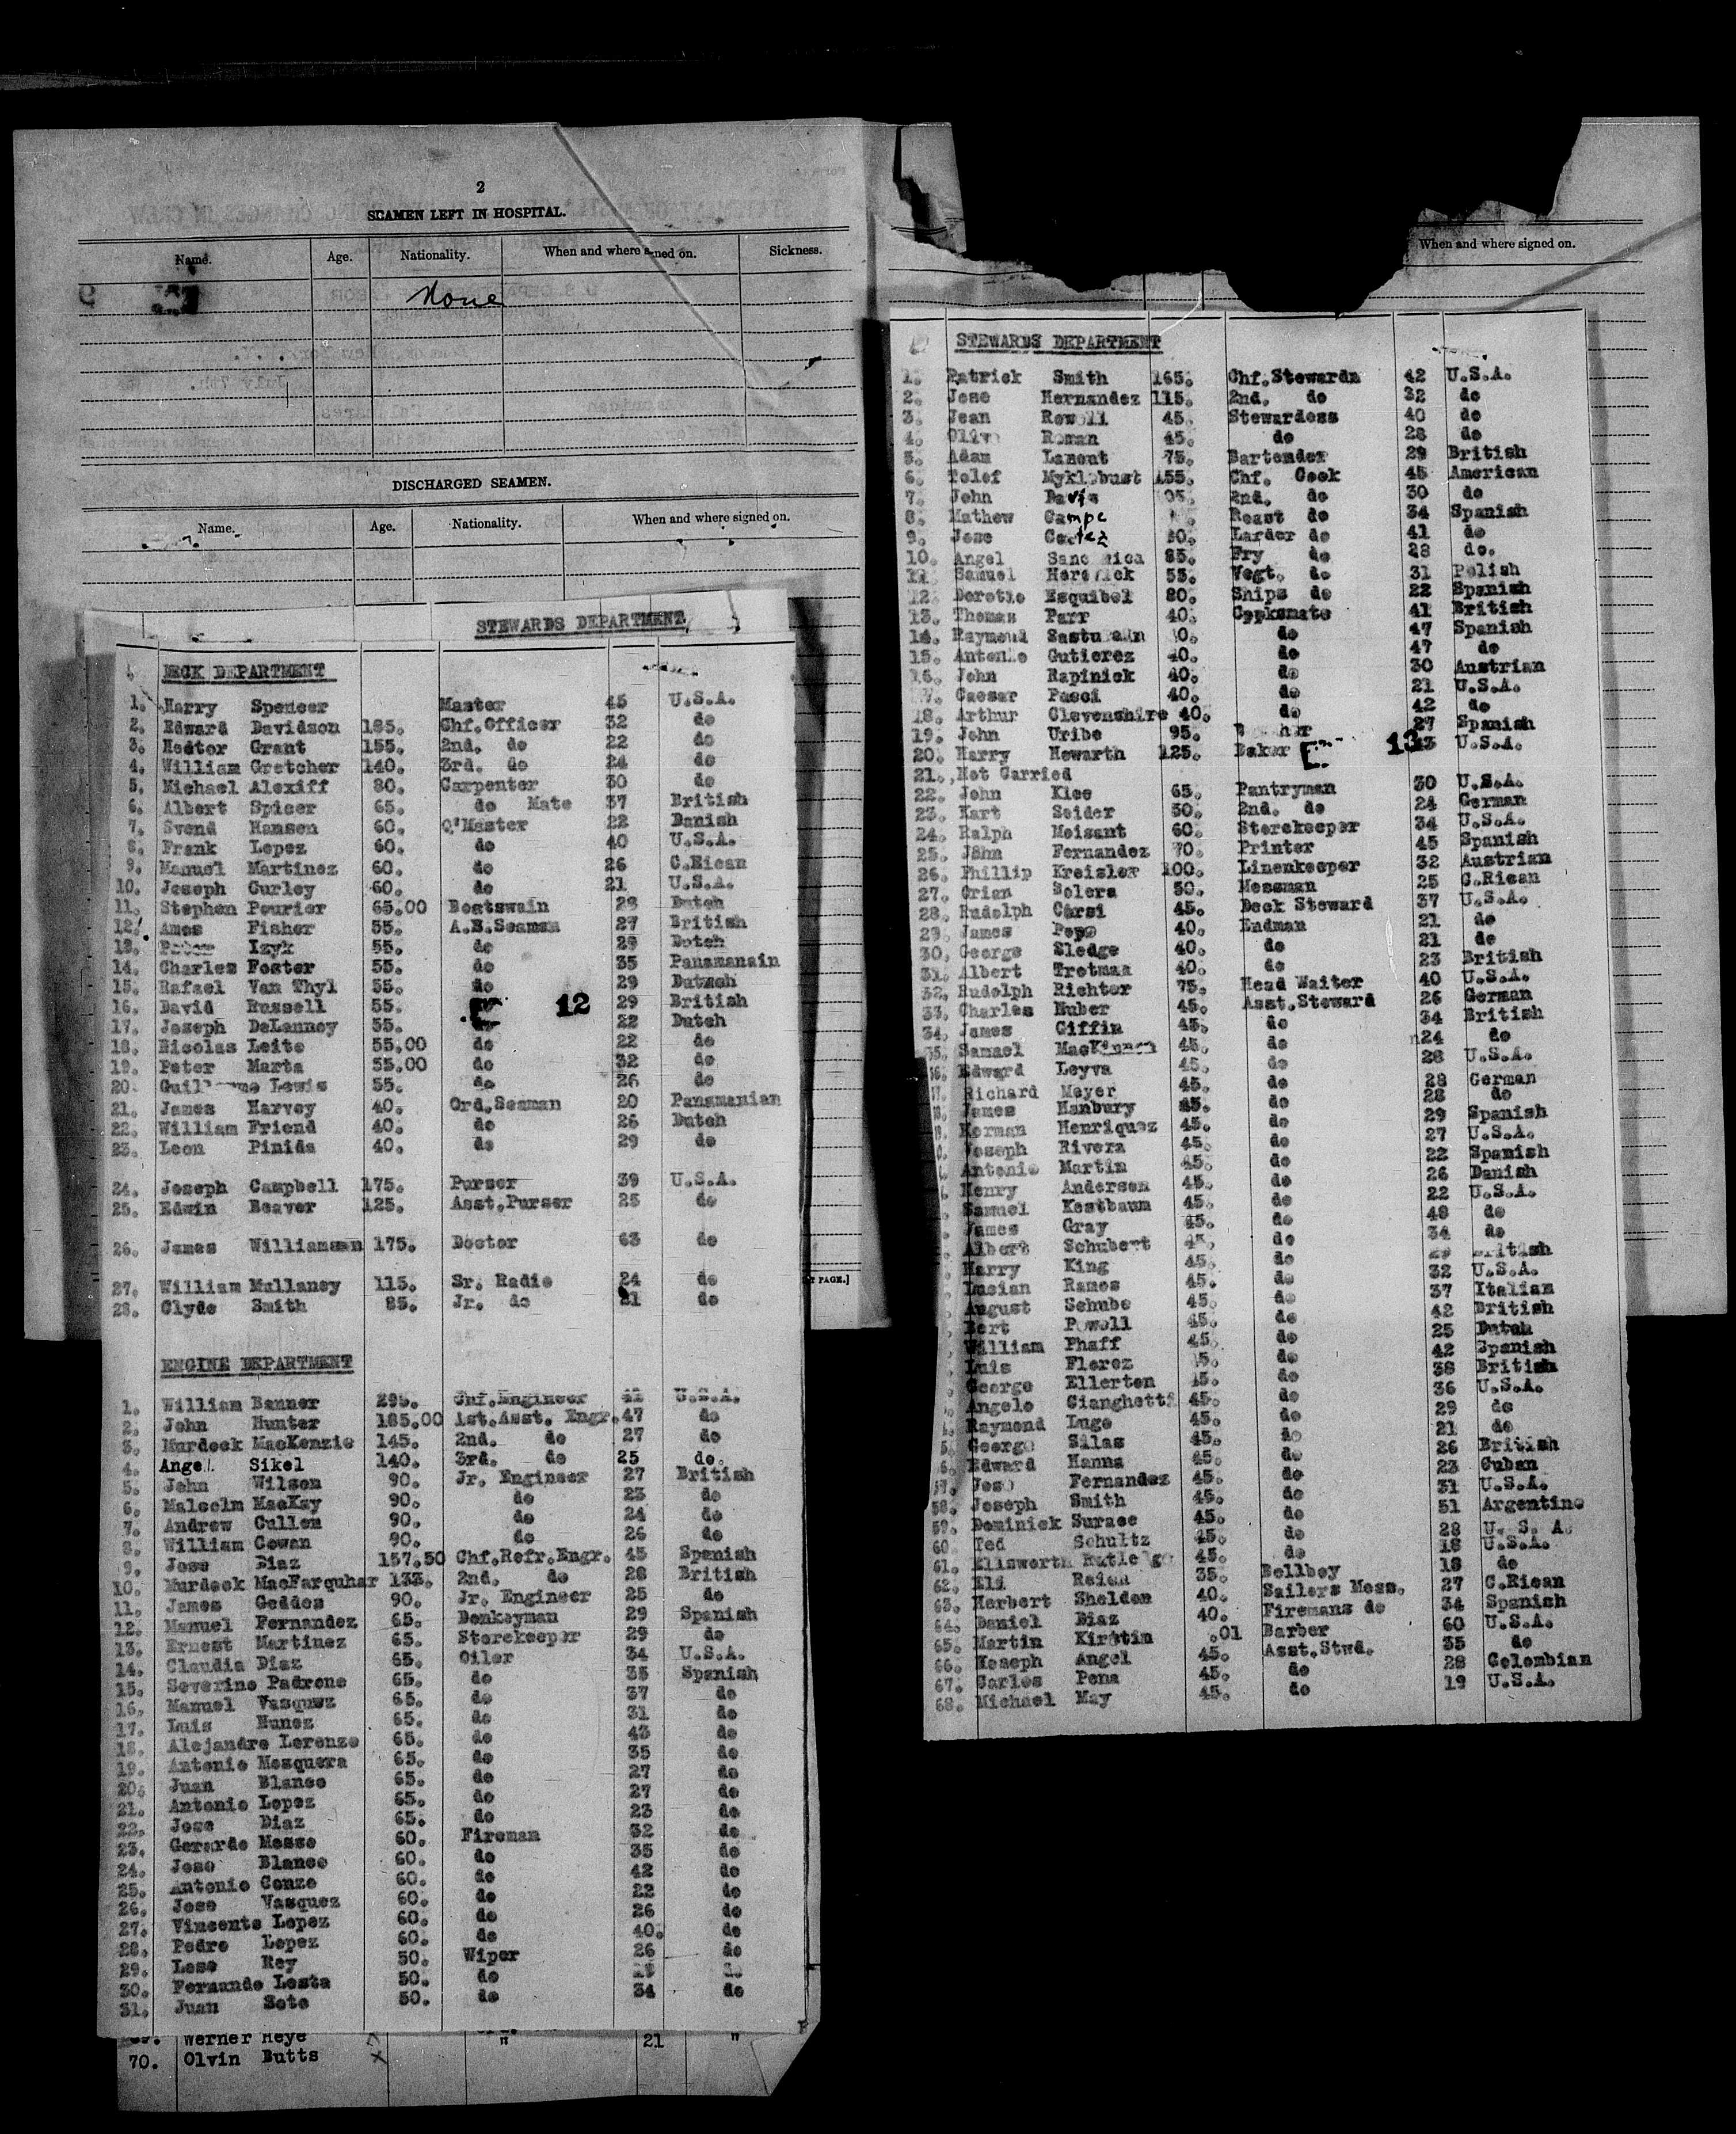 2
SEAMEN LEFT IN HOSPITAL.
Name. Age. Nationality. When and where signed on. Sickness.
None
DISCHARGED SEAMEN.
Name. Age. Nationality. When and where signed on.
STEWARDS DEPARTMENT
DECK DEPARTMENT
1. Harry Spencer Master 45 U.S.A.
2. Edward Davidson 185. Chf.Officer 32 do
3. Hector Grant 155. 2nd. do 22 do
4. William Gretcher 140. 3rd. do 24 do
5. Michael Alexiff 80. Carpenter 30 do
6. Albert Spicer 65. do Mate 37 British
7. Svend Hansen 60. Q'Master 22 Danish
8. Frank Lopez 60. do 40 U.S.A.
9. Manuel Martinez 60. do 26 C.Rican
10. Joseph Curley 60. do 21 U.S.A.
11. Stephen Pourier 65.00 Boatswain 28 Dutch
12. Amos Fisher 55. A.B.Seaman 27 British
13. Peter Izyk 55. do 29 Dutch
14. Charles Foster 55. do 35 Panamanain
15. Rafael Van Thyl 55. do 29 Dutch
16. David Russell 55. 12 29 British
17. Joseph DeLannoy 55. do 22 Dutch
18. Nicolas Leito 55.00 do 22 do
19. Peter Marta 55.00 do 32 do
20. Lewis 55. do 26 do
21. James Harvey 40. Ord.Seaman 20 Panamanian
22. William Friend 40. do 26 Dutch
23. Leon Pinida 40. do 29 do
24. Joseph Campbell 175. Purser 39 U.S.A.
25. Edwin Beaver 125. Asst.Purser 25 do
26. James Williamson 175. Doctor 63 do
27. William Mullaney 115. Sr. Radio 24 do
28. Clyde Smith 85. Jr. do 21 do
ENGINE DEPARTMENT
1. William Banner 295. Chf.Engineer 42 U.S.A.
2. John Hunter 185.00 1st.Asst. Engr. 47 do
3. Murdock MacKenzie 145. 2nd. do 27 do
4. Angel Sikel 140. 3rd. do 25 do.
5. John Wilson 90. Jr. Engineer 27 British
6. Malcolm MacKay 90. do 23 do
7. Andrew Cullen 90. do 24 do
8. William Cowan 90. do 26 do
9. Jose Diaz 157.50 Chf.Refr.Engr. 45 Spanish
10. Murdock MacFarquhar 133. 2nd. do 28 British
11. James Geddes 90. Jr. Engineer 25 do
12. Manuel Fernandez 65. Donkeyman 29 Spanish
13. Ernest Martinez 65. Storekeeper 29 do
14. Claudia Diaz 65. Oiler 34 U.S.A.
15. Severino Padrone 65. do 35 Spanish
16. Manuel Vasquez 65. do 37 do
17. Luis Nunez 65. do 31 do
18. Alejandro Lorenzo 65. do 43 do
19. Antonio Mosquera 65. do 35 do
20. Juan Blanco 65. do 27 do
21. Antonio Lopez 65. do 27 do
22. Jose Diaz 65. do 23 do
23. Gerardo Mosso 60. Fireman 32 do
24. Jose Blanco 60. do 35 do
25. Antonio Conzo 60. do 42 do
26. Jose Vasquez 60. do 22 do
27. Vincente Lopez 60. do 26 do
28. Pedro Lopez 60. do 40. do
29. Lese Rey 50. Wiper 26 do
30. Fernando Lesta 50. do do
31. Juan Soto 50. do 34 do
Werner Heye " 21 "
70. Olvin Butts
When and where signed on.
STEWARDS DEPARTMENT
1. Patrick Smith 165. Chf.Stewards 42 U.S.A.
2. Jose Hernandez 115. 2nd. do 32 do
3. Jean Rowell 45. Stewardess 40 do
4. Olive Roman 45. do 28 do
5. Adam Lamont 75. Bartender 29 British
6. Tolef Myklebust 155. Chf. Cook 45 American
7. John Davis 95. 2nd. do 30 do
8. Mathew Campe Roast do 34 Spanish
9. Jose Cortez 80. Larder do 41 do
10. Angel 85. Fry do 28 do.
11. Samuel 55. Vegt. do 31 Polish
12. Dorotio Esquibel 80. Ships do 22 Spanish
13. Thomas Parr 40. Cppksmate 41 British
14. Raymond do 47 Spanish
15. Antonio Gutierez 40. do 47 do
16. John Rapinick 40. do 30 Austrian
17. Caesar Pasci 40. do 21 U.S.A.
18. Arthur Clevenshire 40. do 42 do
19. John Uribe 95. 27 Spanish
20. Harry Howarth 125. Baker 13 U.S.A.
21. Not Carried
22. John Klee 65. Pantryman 30 U.S.A.
23. Kart Seider 50. 2nd. do 24 German
24. Ralph Moisant 60. Storekeeper 34 U.S.A.
25. John Fernandez 70. Printer 45 Spanish
26. Phillip Kreisler 100. Linenkeeper 32 Austrian
27. Orian Solera 50. Messman 25 C.Rican
28. Rudolph Corsi 45. Deck Steward 37 U.S.A.
29. James Pepe 40. Endman 21 do
30. George Sledge 40. do 21 do
31. Albert Trotman 40. do 23 British
32. Rudolph Richter 75. Head Waiter 40 U.S.A.
33. Charles Huber 45. Asst.Steward 26 German
34. James Giffin 45. do 34 British
35. Samuel MacKinnon 45. do 24 do
36. Edward Leyva 45. do 28 U.S.A.
Richard Meyer 45. do 28 German
James Hanbury 45. do 28 do
Herman Henriquez 45. do 29 Spanish
Joseph Rivera 45. do 27 U.S.A.
Antonio Martin 45. do 22 Spanish
Henry Andersen 45. do 26 Danish
Samuel Kestbaum 45. do 22 U.S.A.
James Gray 45. do 48 do
Albert Schubert 45. do 34 do
Harry King 45. do 29 British
Lucian Ramos 45. do 32 U.S.A.
August Schube 45. do 37 Italian
Bert Powell 45. do 42 British
William Phaff 45. do 25 Dutch
Luis Florez 45. do 42 Spanish
George Ellerton 45. do 38 British
Angelo Cianghetti 45. do 36 U.S.A.
Raymond Lugo 45. do 29 do
George Silas 45. do 21 do
Edward Hanna 45. do 26 British
57. Jose Fernandez 45. do 23 Cuban
58. Joseph Smith 45. do 31 U.S.A.
59. Dominick Surace 45. do 51 Argentine
60. Ted Schultz 45. do 28 U. S. A.
61. Ellsworth Rutledge 45. do 18 U.S.A.
62. Eli 35. Bellboy 18 do
63. Herbert Sheldon 40. Sailors Mess. 27 C.Rican
64. Daniel Diaz 40. Firemans do 34 Spanish
65. Martin Kirstin .01 Barber 60 U.S.A.
66. Hoseph Angel 45. Asst.Stwd. 35 do
67. Carlos Pena 45. do 28 Colombian
68. Michael May 45. do 19 U.S.A.